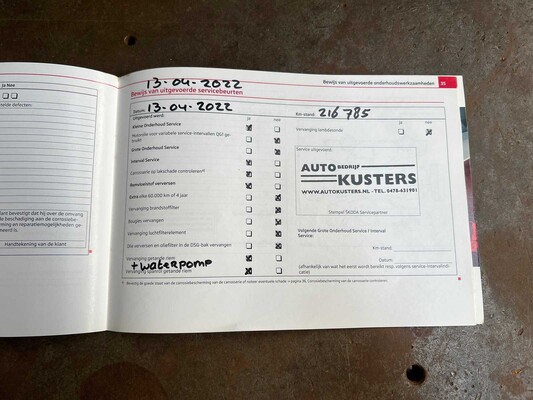 13-04-2022
Bewijs van uitgevoerde onderhoudswerkzaamheden 35
Bewijs van uitgevoerde servicebeurten
Datum: 13-04-2022
Km-stand: 216 785
Uitgevoerd werd: ja nee
Kleine Onderhoud Service
Motorolie voor variabele service intervallen QG1 gebruikt
Grote Onderhoud Service
Interval Service
Carrosserie op lakschade controleren
Remvloeistof verversen
Extra elke 60.000 km of 4 jaar
Vervanging brandstoffilter
Bougies vervangen
Vervanging luchtfilterelement
Olie verversen en oliefilter in de DSG-bak vervangen
Vervanging getande riem
+ waterpomp
Vervanging spanrol getande riem
ja nee
Vervanging
Service uitgevoerd:
AUTO BEDRIJF
KUSTERS
WWW.AUTOKUSTERS.NL - TEL. 0478-631901
Stempel ŠKODA Servicepartner
Volgende Grote Onderhoud Service / Interval
Service:
Km-stand:
Datum:
(afhankelijk van wat het eerst wordt bereikt resp. volgens service-intervalindicatie)
Ja Nee
defecten
Handtekening van de klant